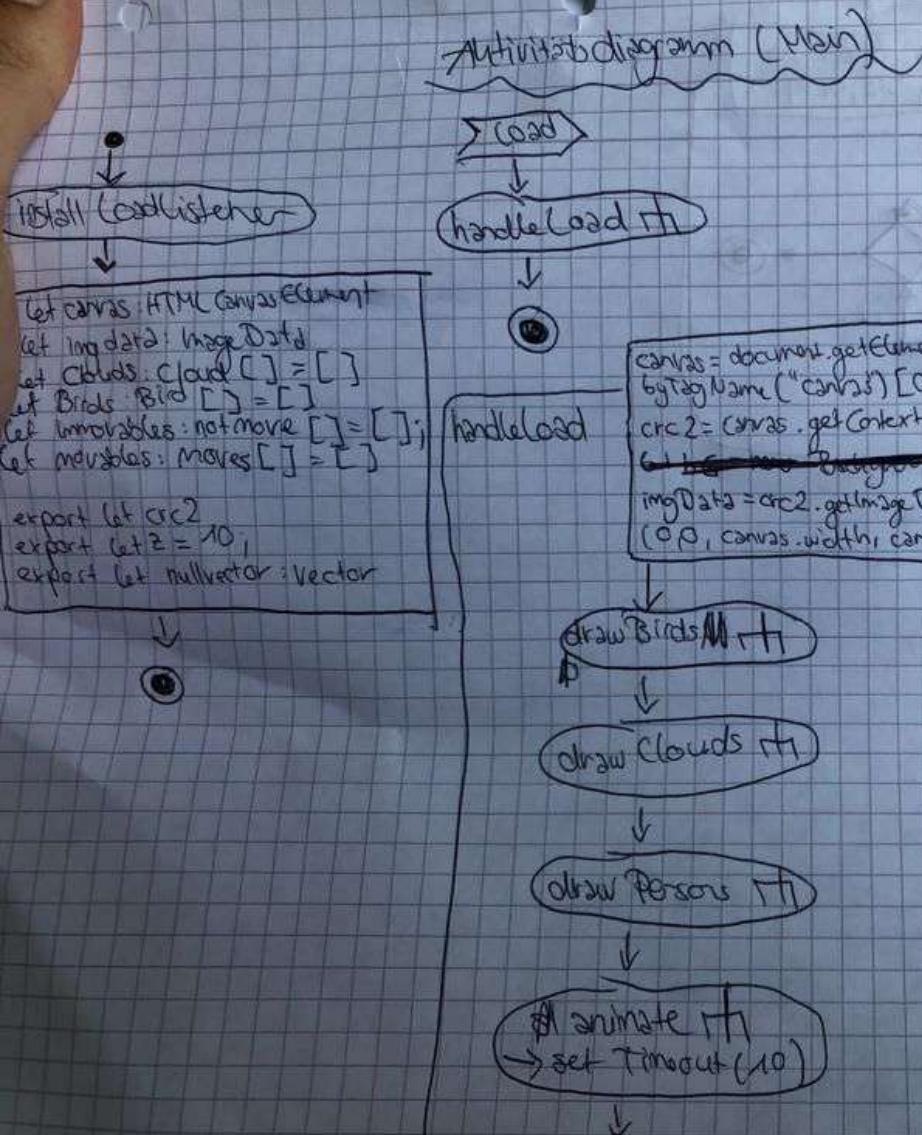 Aktivitätsdiagramm (Main)
install LoadListener
let canvas: HTML Canvas Element
let imgdata: ImageData
let Clouds: Cloud [] = []
let Birds: Bird [] = []
let immovables: notmove [] = [];
let movables: moves [] = []
export let crc2
export let z = 10;
export let nullvector: vector
Load
handleLoad
handleLoad
canvas = document.getEleme
byTagName ("canvas) [
crc2 = canvas.getContext
imgData = crc2.getImage
(0,0, canvas.width, can
draw Birds
draw Clouds
draw Persons
animate
→ set Timeout (10)